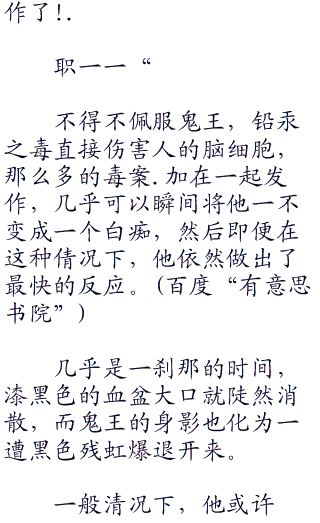 作了!.
职一一“
不得不佩服鬼王，铅汞
之毒直接伤害人的脑细胞，
那么多的毒案.加在一起发
作，几乎可以瞬间将他一不
变成一个白痴，然后即便在
这种情况下，他依然做出了
最快的反应。(百度“有意思
书院”)
几乎是一刹那的时间，
漆黑色的血盆大口就陡然消
散，而鬼王的身影也化为一
遭黑色残虹爆退开来。
一般清况下，他或许